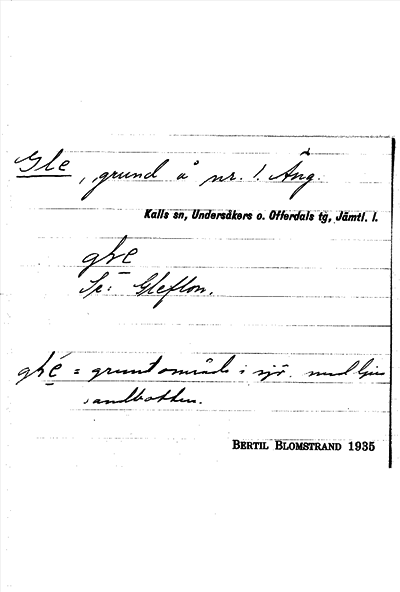 Gle, grund å nr. 1. Äng.
Kalls sn, Undersåkers o. Offerdals tg, Jämtl. l.
Se: Gleflon.
= grunt område i sjö. med ljus
sandbotten.
BERTIL BLOMSTRAND 1935